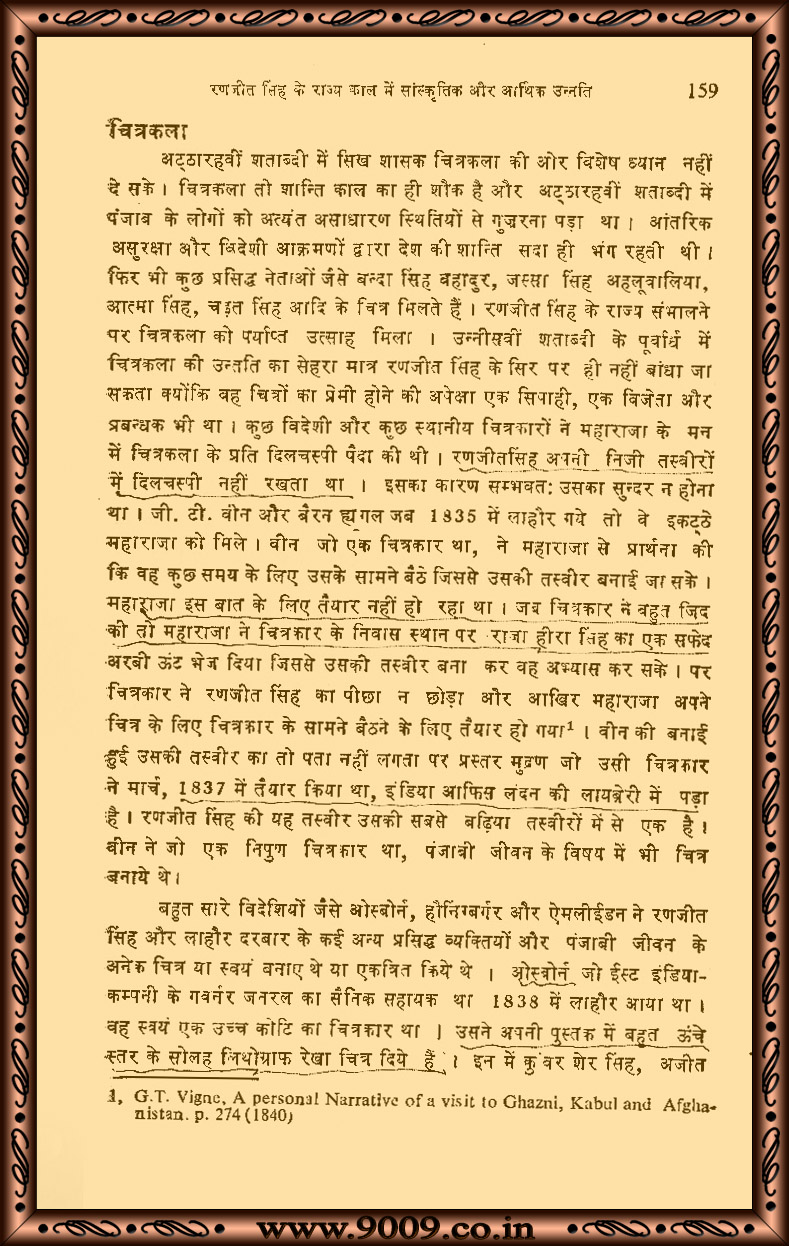 रणजीत सिंह के राज्य काल में सांस्कृतिक और आर्थिक उन्नति 159
चित्रकला
अट्ठारहवीं शताब्दी में सिख शासक चित्रकला की ओर विशेष ध्यान नहीं
दे सके। चित्रकला तो शान्ति काल का ही शौक है और अट्ठारहवीं शताब्दी में
पंजाब के लोगों को अत्यंत असाधारण स्थितियों से गुज़रना पड़ा था। आंतरिक
असुरक्षा और विदेशी आक्रमणों द्वारा देश की शान्ति सदा ही भंग रहती थी।
फिर भी कुछ प्रसिद्ध नेताओं जैसे बन्दा सिंह बहादुर, जस्सा सिंह अहलूवालिया,
आत्मा सिंह, चड़त सिंह आदि के चित्र मिलते हैं। रणजीत सिंह के राज्य संभालने
पर चित्रकला को पर्याप्त उत्साह मिला । उन्नीसवीं शताब्दी के पूर्वार्ध में
चित्रकला की उन्नति का सेहरा मात्र रणजीत सिंह के सिर पर ही नहीं बांधा जा
सकता क्योंकि वह चित्रों का प्रेमी होने की अपेक्षा एक सिपाही, एक विजेता और
प्रबन्धक भी था। कुछ विदेशी और कुछ स्थानीय चित्रकारों ने महाराजा के मन
में चित्रकला के प्रति दिलचस्पी पैदा की थी। रणजीतसिंह अपनी निजी तस्वीरों
में दिलचस्पी नहीं रखता था । इसका कारण सम्भवत: उसका सुन्दर न होना
था। जी. टी. वीन और बैरन ह्यूगल जब 1835 में लाहौर गये तो वे इकट्ठे
महाराजा को मिले। वीन जो एक चित्रकार था, ने महाराजा से प्रार्थना की
कि वह कुछ समय के लिए उसके सामने बैठे जिससे उसकी तस्वीर बनाई जा सके।
महाराजा इस बात के लिए तैयार नहीं हो रहा था। जब चित्रकार ने बहुत जिद
की तो महाराजा ने चित्रकार के निवास स्थान पर राजा हीरा सिंह का एक सफेद
अरबी ऊंट भेज दिया जिससे उसकी तस्वीर बना कर वह अभ्यास कर सके। पर
चित्रकार ने रणजीत सिंह का पीछा न छोड़ा और आखिर महाराजा अपने
चित्र के लिए चित्रकार के सामने बैठने के लिए तैयार हो गया¹। वीन की बनाई
हुई उसकी तस्वीर का तो पता नहीं लगता पर प्रस्तर मुद्रण जो उसी चित्रकार
ने मार्च, 1837 में तैयार किया था, इंडिया आफिस लंदन की लायब्रेरी में पड़ा
है। रणजीत सिंह की यह तस्वीर उसकी सबसे बढ़िया तस्वीरों में से एक है।
वीन ने जो एक निपुण चित्रकार था, पंजाबी जीवन के विषय में भी चित्र
बनाये थे।
बहुत सारे विदेशियों जैसे ओस्बोर्न, हौनिग्बर्गर और ऐमलीईडन ने रणजीत
सिंह और लाहौर दरबार के कई अन्य प्रसिद्ध व्यक्तियों और पंजाबी जीवन के
अनेक चित्र या स्वयं बनाए थे या एकत्रित किये थे । ओस्बोर्न जो ईस्ट इंडिया-
कम्पनी के गवर्नर जनरल का सैनिक सहायक था 1838 में लाहौर आया था।
वह स्वयं एक उच्च कोटि का चित्रकार था । उसने अपनी पुस्तक में बहुत ऊंचे
स्तर के सोलह लिथोग्राफ रेखा चित्र दिये हैं। इन में कुंवर शेर सिंह, अजीत
1, G.T. Vigne, A personal Narrative of a visit to Ghazni, Kabul and Afgha-
nistan. p. 274 (1840)
www.9009.co.in